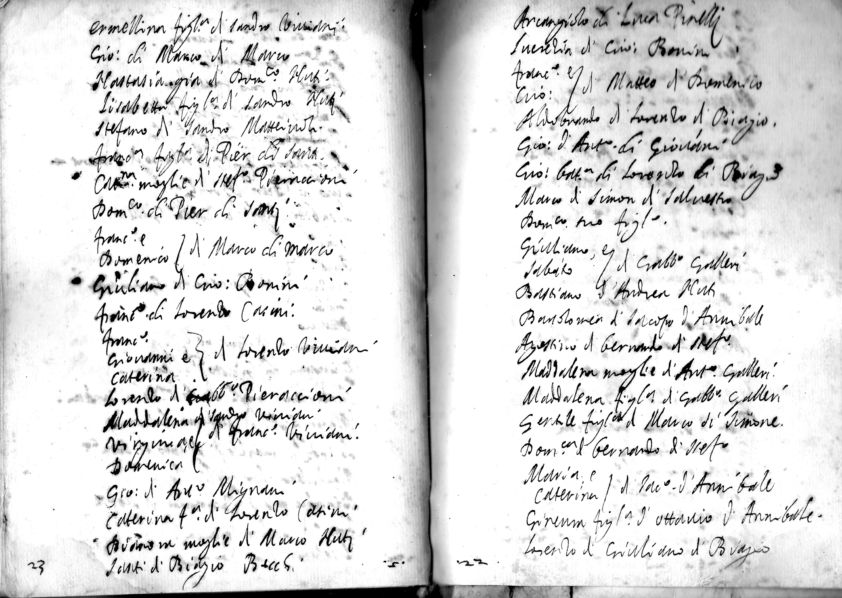 ermellina figl.a di sandro Viviani
Gio: di Marco di Marco
Nastasia già di Dom.co Nuti
Lisabetta figl.a di Sandro Nuti
Stefano di Sandro Matteucci
franc.a figl.a di Pier di Santi
Cat.na moglie di Stef.o Pieraccioni
Dom.co di Pier di Santi
franc.o e
Domenico di Marco di Marco
Giuliano di Gio: Bonini
franc.o di Lorenzo Cascini
franc.o
Giovanni e di Lorenzo Viviani
Caterina
Lorenzo di Gabb.o Pieraccioni
Maddalena di Sandro Viviani
Virginia e di franc.o Viviani
Domenica
Gio: di Ant.o Mignani
Caterina f.a di Lorenzo Cascini
Dianora moglie di Marco Nuti
Santi di Biagio Becchi
23
5
Arcangiolo di Luca Pinelli
Lucrezia di Gio: Bonini
franc.o e
Gio: di Matteo di Domenico
Aldobrando di Lorenzo di Biagio.
Gio: d'Ant.o di Giovanni
Gio: Batt.a di Lorenzo di Biagio
Marco di Simon di Salvestro
Dom.co suo figl.o
Giuliano, e
Sabato di Gabb.o Galleri
Bastiano d'Andrea Nuti
Bartolomea di Jacopo d'Annibale
Agostino di Bernardo di Stef.o
Maddalena moglie d'Ant.o Galleri
Maddalena figl.a di Gabb.o Galleri
Gentile figl.a di Marco di Simone.
Dom.ca di Bernardo di Stef.o
Maria e
Caterina di Jac.o d'Annibale
Ginevra figl.a d'Ottavio d'Annibale.
Lorenzo di Giuliano di Biagio
22